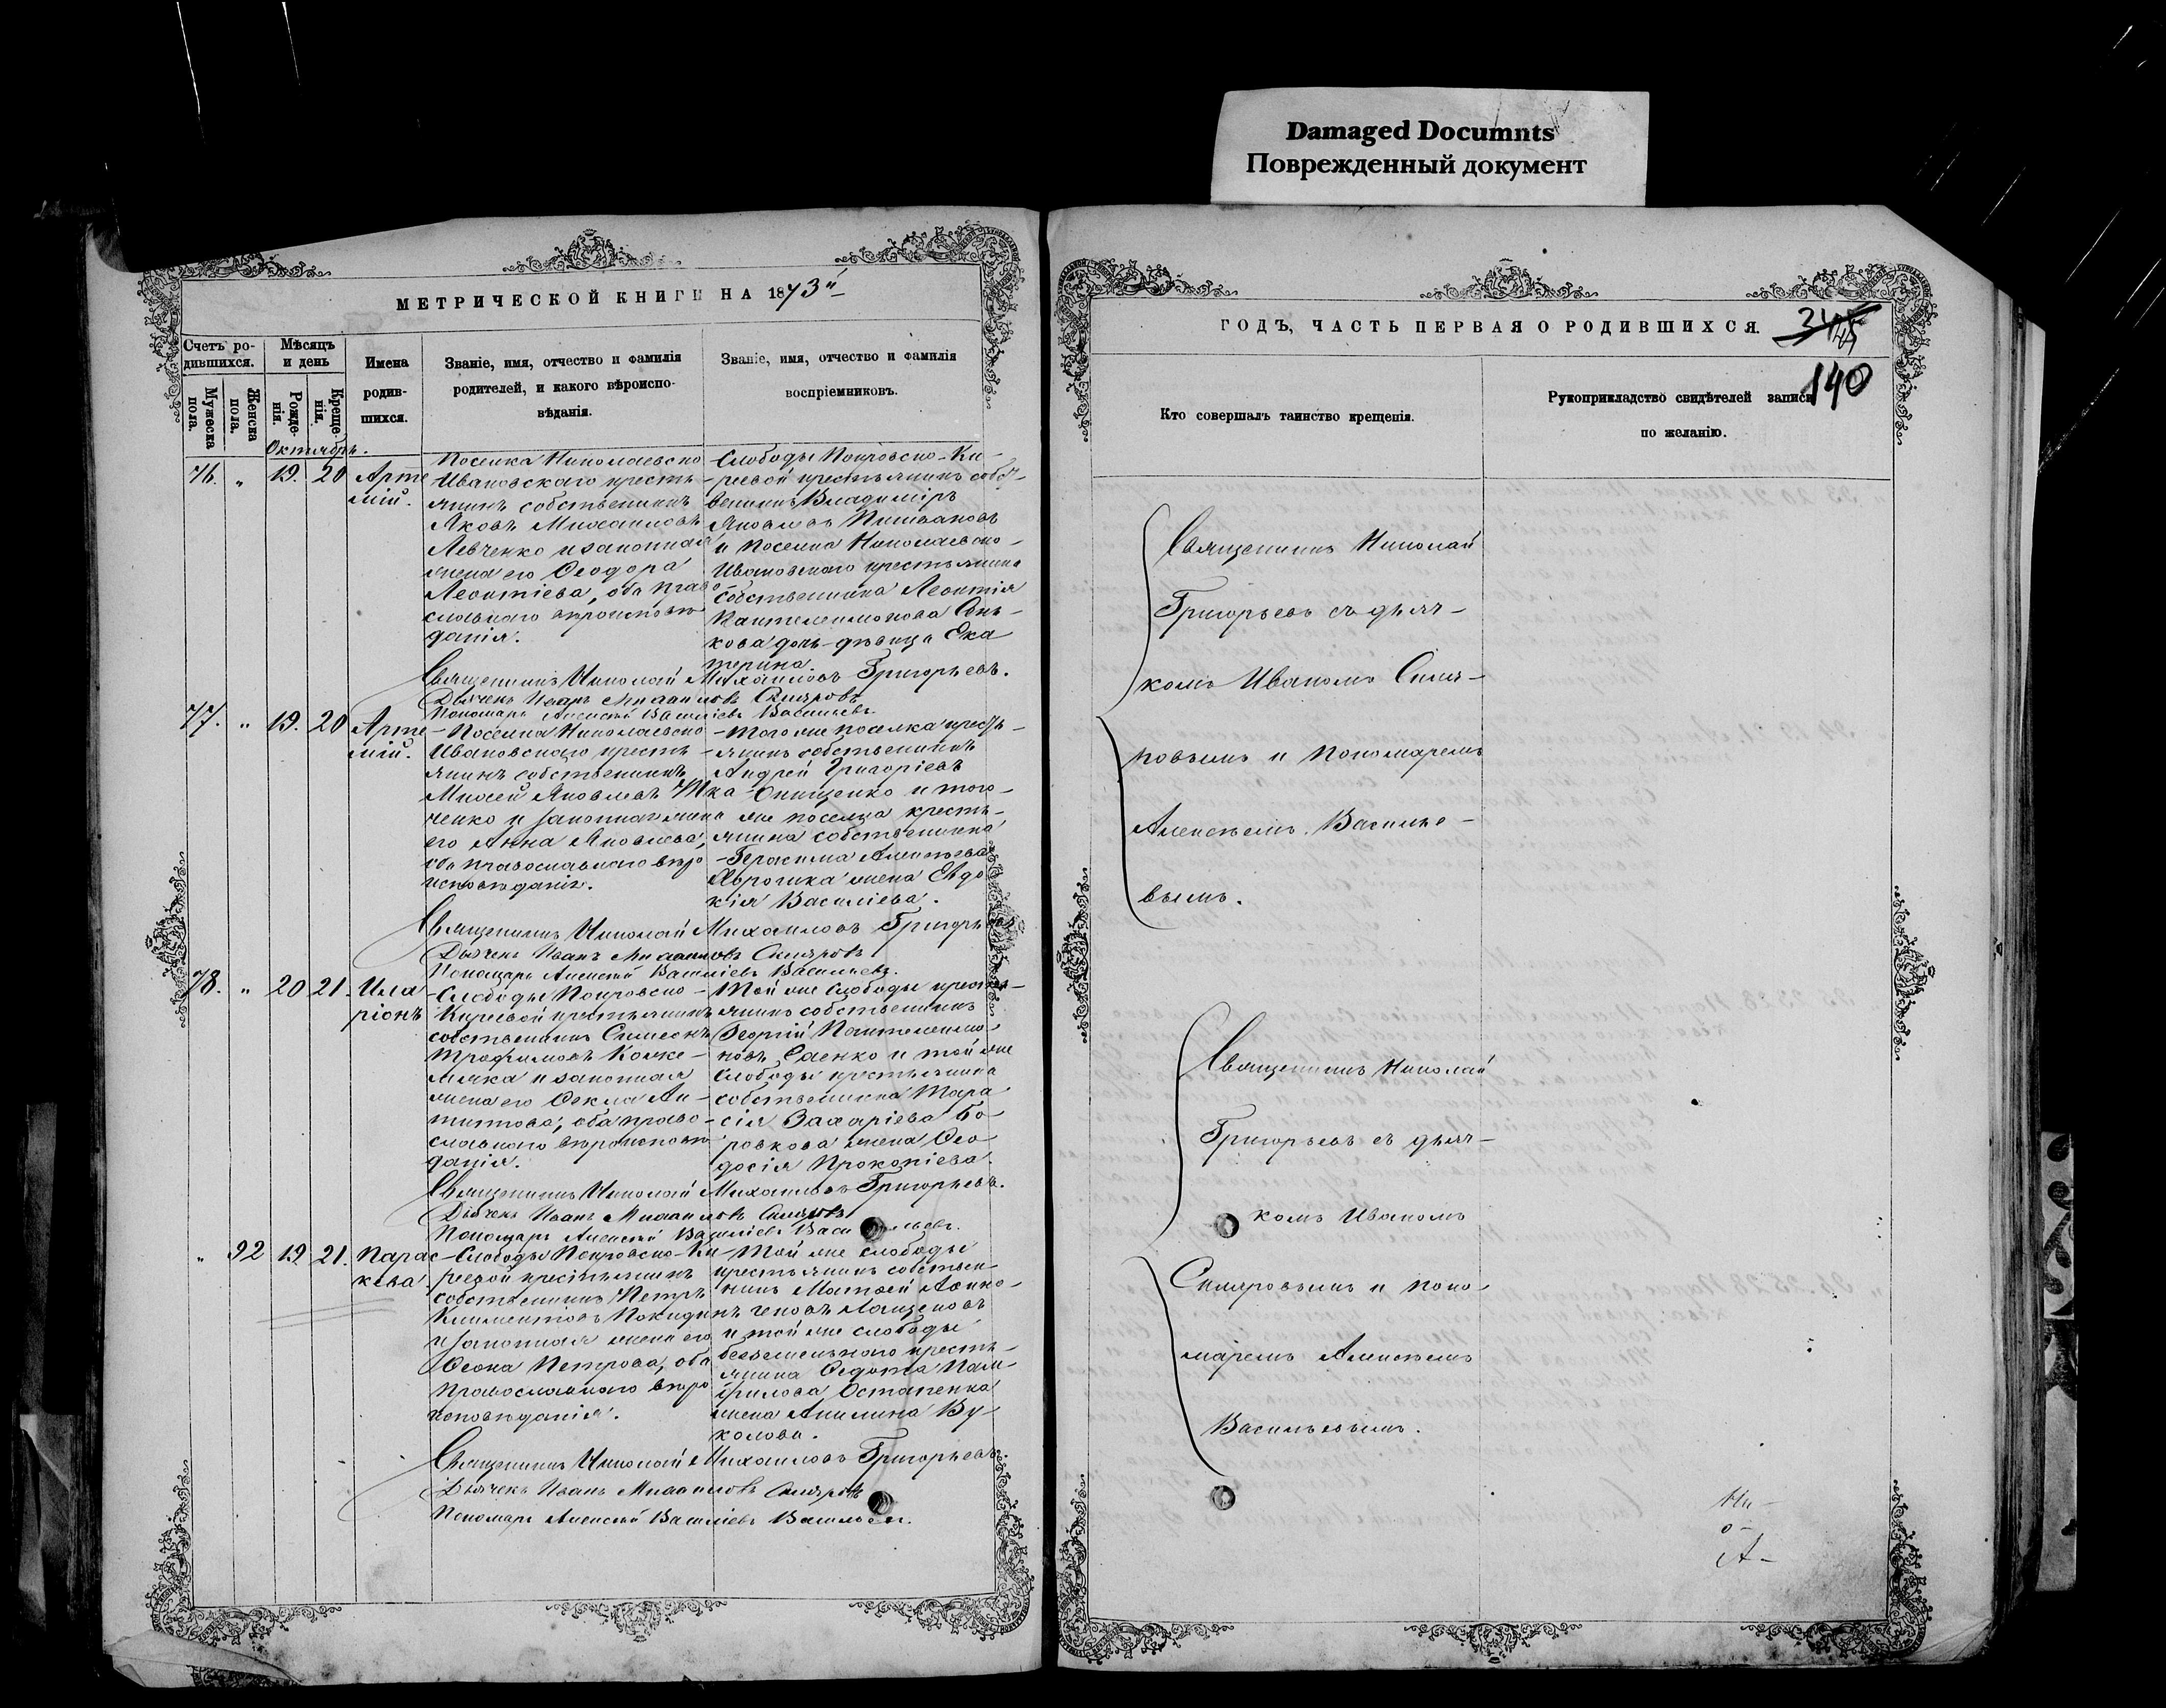 Damaged Documnts
Поврежденный документ
МЕТРИЧЕСКОЙ КНИГИ НА 1873й
Счетъ ро-
дившихся.
Мужеска
пола.
Женска
пола.
Мѣсяцъ
и день
Рожде-
нія.
Креще-
нія.
Имена
родив-
шихся.
Званіе, имя, отчество и фамилія
родителей, и какого вѣроиспо-
вѣданія.
Званіе, имя, отчество и фамилія
воспріемниковъ.
Октябрь.
76. " 19. 20 Арте
мій.
Поселка Николаевско
Ивановскаго кресть-
янинъ собственникъ
Яковъ Михаиловъ
Левченко и законная
жена его Ѳеодора
Леонтіева, оба право
славнаго вѣроисповѣ
данія.
Слободы Покровско-Ки-
реевой крестьянинъ собст-
венникъ Владиміръ
Яковлевъ
и поселка Николаевско-
Ивановскаго крестьянина
собственника Леонтія
Пантелеимонова
кова дочь-дѣвица Ека
терина.
Священникъ Николай Михаиловъ Григорьевъ.
Дьячекъ Иванъ Михаиловъ Скляровъ
Пономарь Алексѣй Василіевъ Васильевъ.
77. " 19. 20 Арте
мій.
Поселка Николаевско
Ивановскаго кресть-
янинъ собственникъ
Моисей Яковлевъ Тка-
ченко и законная жена
его Анна Яковлева,
оба православнаго вѣро
исповѣданія.
Того же поселка кресть-
янинъ собственникъ
Андрей Григоріевъ
Онищенко и того-
же поселка кресть-
янина собственника
Герасима Алексѣева
жена Евдо
кія Василіева.
Священникъ Николай Михаиловъ Григорьевъ
Дьячекъ Иванъ Михаиловъ Скляровъ
Пономарь Алексѣй Василіевъ Васильевъ.
78. " 20 21. Ила
ріонъ
Слободы Покровско-
Киреевой крестьянинъ
собственникъ Симеонъ
Трофимовъ Коже-
мяка и законная
жена его Ѳекла Ан-
типова, оба право-
славнаго вѣроисповѣ
данія.
Той же слободы кресть-
янинъ собственникъ
Георгій Пантелеимо-
новъ Саенко и той же
слободы крестьянина
собственника Тара
сія Захаріева Бо-
ровкова жена Ѳео-
досія Прокопіева.
Священникъ Николай Михаиловъ Григорьевъ.
Дьячекъ Иванъ Михаиловъ Скляровъ
Пономарь Алексѣй Василіевъ Васильевъ.
" 92 19. 21. Парас
кева.
Слободы Покровско-Ки-
реевой крестьянинъ
собственникъ Петръ
Климентовъ
и законная жена его
Ѳеона Петрова, оба
православнаго вѣро
исповѣданія.
Той же слободы
крестьянинъ собствен-
никъ Матѳей
и той же слободы
безземельнаго кресть-
янина Ѳедота Пам-
филова Остапенка
жена Акилина Ву-
колова.
Священникъ Николай Михаиловъ Григорьевъ.
Дьячекъ Иванъ Михаиловъ Скляровъ
Пономарь Алексѣй Василіевъ Васильевъ.
ГОДЪ, ЧАСТЬ ПЕРВАЯ О РОДИВШИХСЯ.
140
Кто совершалъ таинство крещенія.
Рукоприкладство свидѣтелей записи
по желанію.
Священникъ Николай
Григорьевъ съ дьяч-
комъ Иваномъ Скля-
ровымъ и пономаремъ
Алексѣемъ Василье-
вымъ.
Священникъ Николай
Григорьевъ съ дьяч-
комъ Иваномъ
Скляровымъ и поно-
маремъ Алексѣемъ
Васильевымъ.
Ни-
о-
А-